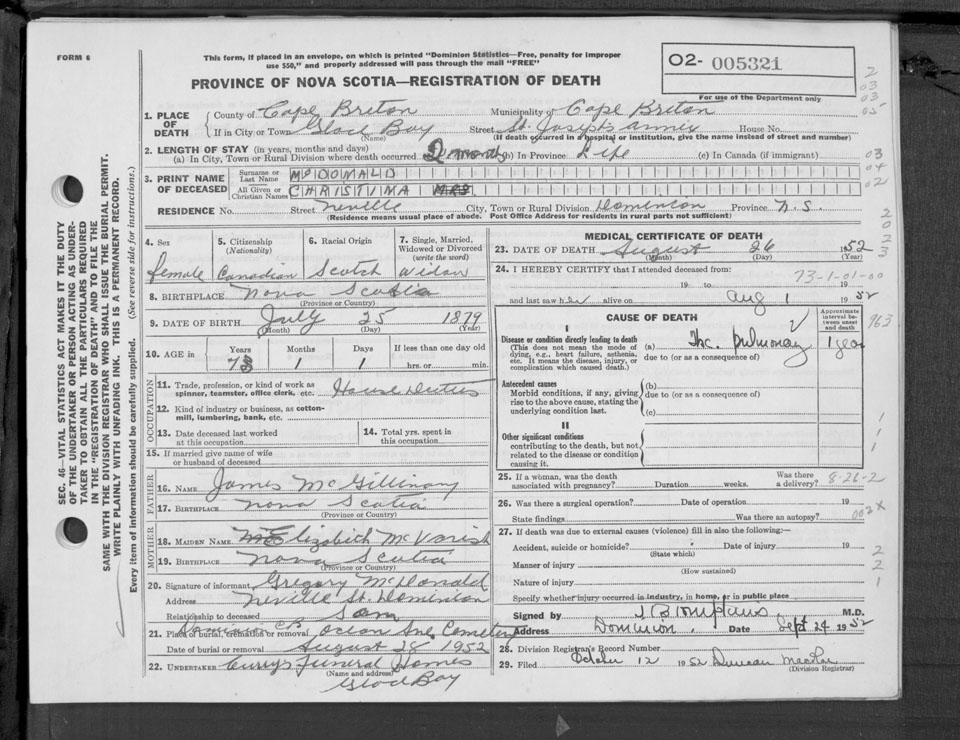 FORM 6
This form, if placed in an envelope, on which is printed "Dominion Statistics—Free, penalty for improper
use $50," and properly addressed will pass through the mail "FREE"
PROVINCE OF NOVA SCOTIA—REGISTRATION OF DEATH
O2- 005321
For use of the Department only
1. PLACE OF DEATH
County of Cape Breton Municipality of Cape Breton
If in City or Town Glace Bay Street St. Joseph's annex House No.
(Name) (If death occurred in a hospital or institution, give the name instead of street and number)
2. LENGTH OF STAY (in years, months and days)
(a) In City, Town or Rural Division where death occurred 2 month (b) In Province Life (c) In Canada (if immigrant)
3. PRINT NAME OF DECEASED
Surname or Last Name McDONALD
All Given or Christian Names CHRISTINA MRS.
RESIDENCE No. Street Neville City, Town or Rural Division Dominion Province N.S.
(Residence means usual place of abode. Post Office Address for residents in rural parts not sufficient)
4. Sex female
5. Citizenship (Nationality) Canadian
6. Racial Origin Scotch
7. Single, Married, Widowed or Divorced (write the word) widow
8. BIRTHPLACE Nova Scotia
(Province or Country)
9. DATE OF BIRTH July 25 1879
(Month) (Day) (Year)
10. AGE in Years 73 Months 1 Days 1 If less than one day old hrs. or min.
OCCUPATION
11. Trade, profession, or kind of work as spinner, teamster, office clerk, etc. House Duties
12. Kind of industry or business, as cotton-mill, lumbering, bank, etc.
13. Date deceased last worked at this occupation
14. Total yrs. spent in this occupation
15. If married give name of wife or husband of deceased
FATHER
16. NAME James McGillivary
17. BIRTHPLACE Nova Scotia
(Province or Country)
MOTHER
18. MAIDEN NAME Elizabeth McVarish
19. BIRTHPLACE Nova Scotia
(Province or Country)
20. Signature of informant Gregory McDonald
Address Neville St. Dominion
Relationship to deceased Son
21. Place of burial, cremation or removal Dominion C.B. Ocean Ave. Cemetery
Date of burial or removal August 28 1952
22. UNDERTAKER Curry's Funeral Homes
(Name and address)
Glace Bay
MEDICAL CERTIFICATE OF DEATH
23. DATE OF DEATH August 26 1952
(Month) (Day) (Year)
24. I HEREBY CERTIFY that I attended deceased from:
73-1-01-00
19 to 19
and last saw her alive on Aug 1 1952
CAUSE OF DEATH
Approximate interval between onset and death
963
I
Disease or condition directly leading to death
(This does not mean the mode of dying, e.g., heart failure, asthenia, etc. It means the disease, injury, or complication which caused death.)
(a) Tbc. pulmonary 1 year
due to (or as a consequence of)
Antecedent causes
Morbid conditions, if any, giving rise to the above cause, stating the underlying condition last.
(b)
due to (or as a consequence of)
(c)
II
Other significant conditions
contributing to the death, but not related to the disease or condition causing it.
25. If a woman, was the death associated with pregnancy? Duration weeks. Was there a delivery? 8-26-2
26. Was there a surgical operation? Date of operation 19
State findings Was there an autopsy? 002X
27. If death was due to external causes (violence) fill in also the following:—
Accident, suicide or homicide? Date of injury 19
(State which)
Manner of injury
(How sustained)
Nature of injury
Specify whether injury occurred in industry, in home, or in public place
Signed by J B Tompkins M.D.
Address Dominion. Date Sept 24 1952
28. Division Registrar's Record Number
29. Filed October 12 1952 Duncan MacRae
(Division Registrar)
SEC. 46—VITAL STATISTICS ACT MAKES IT THE DUTY
OF THE UNDERTAKER OR PERSON ACTING AS UNDER-
TAKER TO OBTAIN ALL THE PARTICULARS REQUIRED
IN THE "REGISTRATION OF DEATH" AND TO FILE THE
SAME WITH THE DIVISION REGISTRAR WHO SHALL ISSUE THE BURIAL PERMIT.
WRITE PLAINLY WITH UNFADING INK. THIS IS A PERMANENT RECORD.
Every item of information should be carefully supplied. (See reverse side for instructions.)
2
03
03
05
03
04
02
2
0
2
3
1
1
2
2
1